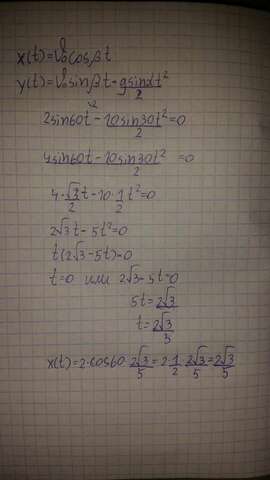 x(t)=V₀cosβt
y(t)=V₀sinβt-gsinαt²/2
2sin60t-10sin30t²/2=0
4sin60t-10sin30t²/2=0
4·√3/2t-10·1/2t²=0
2√3t-5t²=0
t(2√3-5t)=0
t=0 или 2√3-5t=0
5t=2√3
t=2√3/5
x(t)=2·cos60·2√3/5=2·1/2·2√3/5=2√3/5